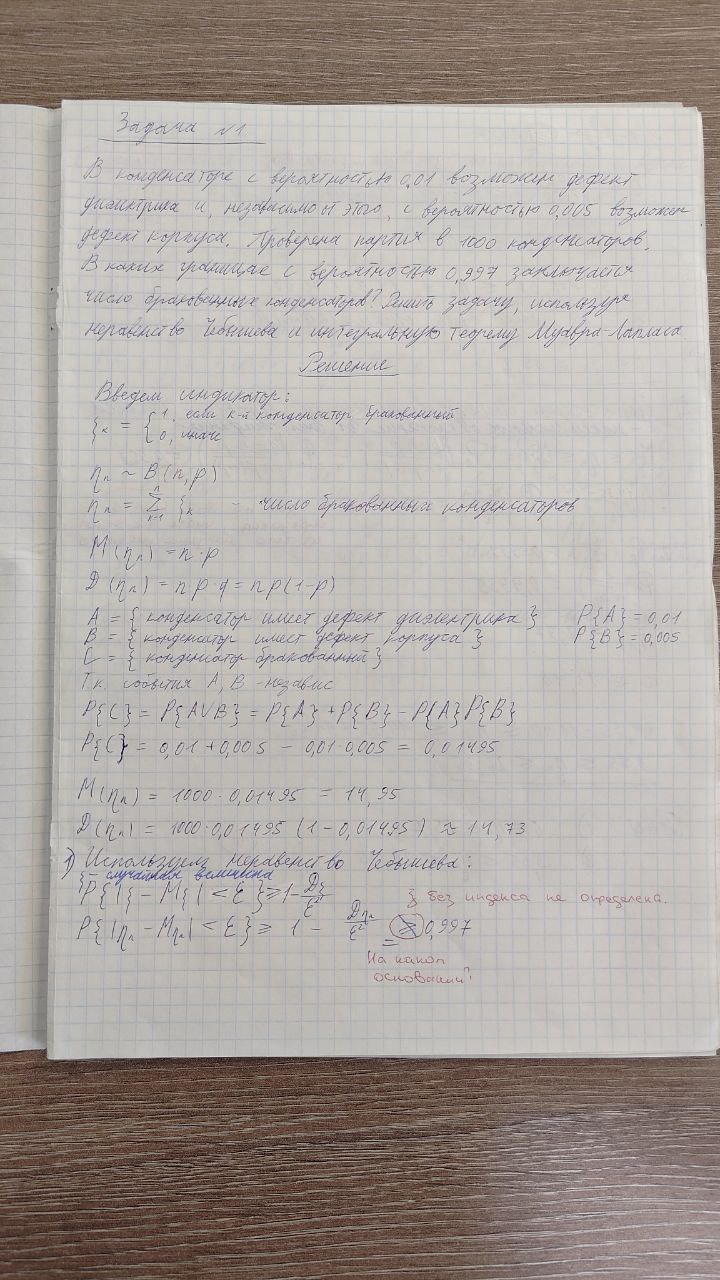 Задача №1
В конденсаторе с вероятностью 0,01 возможен дефект
диэлектрика и, независимо от этого, с вероятностью 0,005 возможен
дефект корпуса. Проверена партия в 1000 конденсаторов.
В каких границах с вероятностью 0,997 заключается
число бракованных конденсаторов? Решить задачу, используя
неравенство Чебышева и интегральную теорему Муавра-Лапласа
Решение
Введем индикатор:
ξₖ = { 1, если k-й конденсатор бракованный
0, иначе
ηₙ ~ B(n,p)
ηₙ = Σ ξₖ - число бракованных конденсаторов
n
k=1
M(ηₙ) = n·p
D(ηₙ) = n·p·q = np(1-p)
A = { конденсатор имеет дефект диэлектрика } P{A} = 0,01
B = { конденсатор имеет дефект корпуса } P{B} = 0,005
C = { конденсатор бракованный }
Т.к. события A, B - независ
P{C} = P{A∪B} = P{A} + P{B} - P{A}P{B}
P{C} = 0,01 + 0,005 - 0,01·0,005 = 0,01495
M(ηₙ) = 1000·0,01495 = 14,95
D(ηₙ) = 1000·0,01495 (1-0,01495) ≈ 14,73
1) Используем неравенство Чебышева:
ξ - случайная величина
P{|ξ - Mξ| < ε} ≥ 1 - Dξ/ε² ξ без индекса не определена.
P{|ηₙ - Mηₙ| < ε} ≥ 1 - Dηₙ/ε² ≥ 0,997
=
На каком
основании?